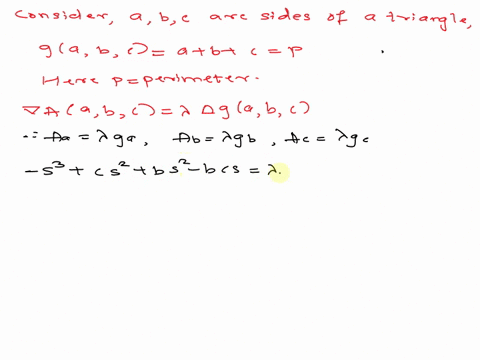 Consider, a, b, c are sides of a triangle,
g(a, b, c) = a + b + c = p
Here p = perimeter.
∇A(a, b, c) = λ Δg(a, b, c)
∵ Aa = λga, Ab = λgb, Ac = λgc
-s³ + cs² + bs² - bcs = λ